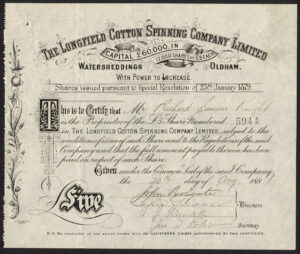 THE LONGFIELD COTTON SPINNING COMPANY LIMITED
CAPITAL £60,000, IN
12,000 SHARES OF £5 EACH
WATERSHEDDINGS OLDHAM.
WITH POWER TO INCREASE
Shares issued pursuant to Special Resolution of 25th January 1879.
This is to Certify that Mr Richard Knight
is the Proprietor of the £5 Share Numbered 5944
in THE LONGFIELD COTTON SPINNING COMPANY LIMITED, subject to the
conditions of issue of such Share and to the Regulations of the said
Company and that the full amount payable thereon has been
paid in respect of such Share.
Given under the Common Seal of the said Company
the 20th day of 188
Five
Directors
Secretary
N.B. No TRANSFER OF THE ABOVE SHARE WILL BE REGISTERED UNLESS ACCOMPANIED BY THIS CERTIFICATE